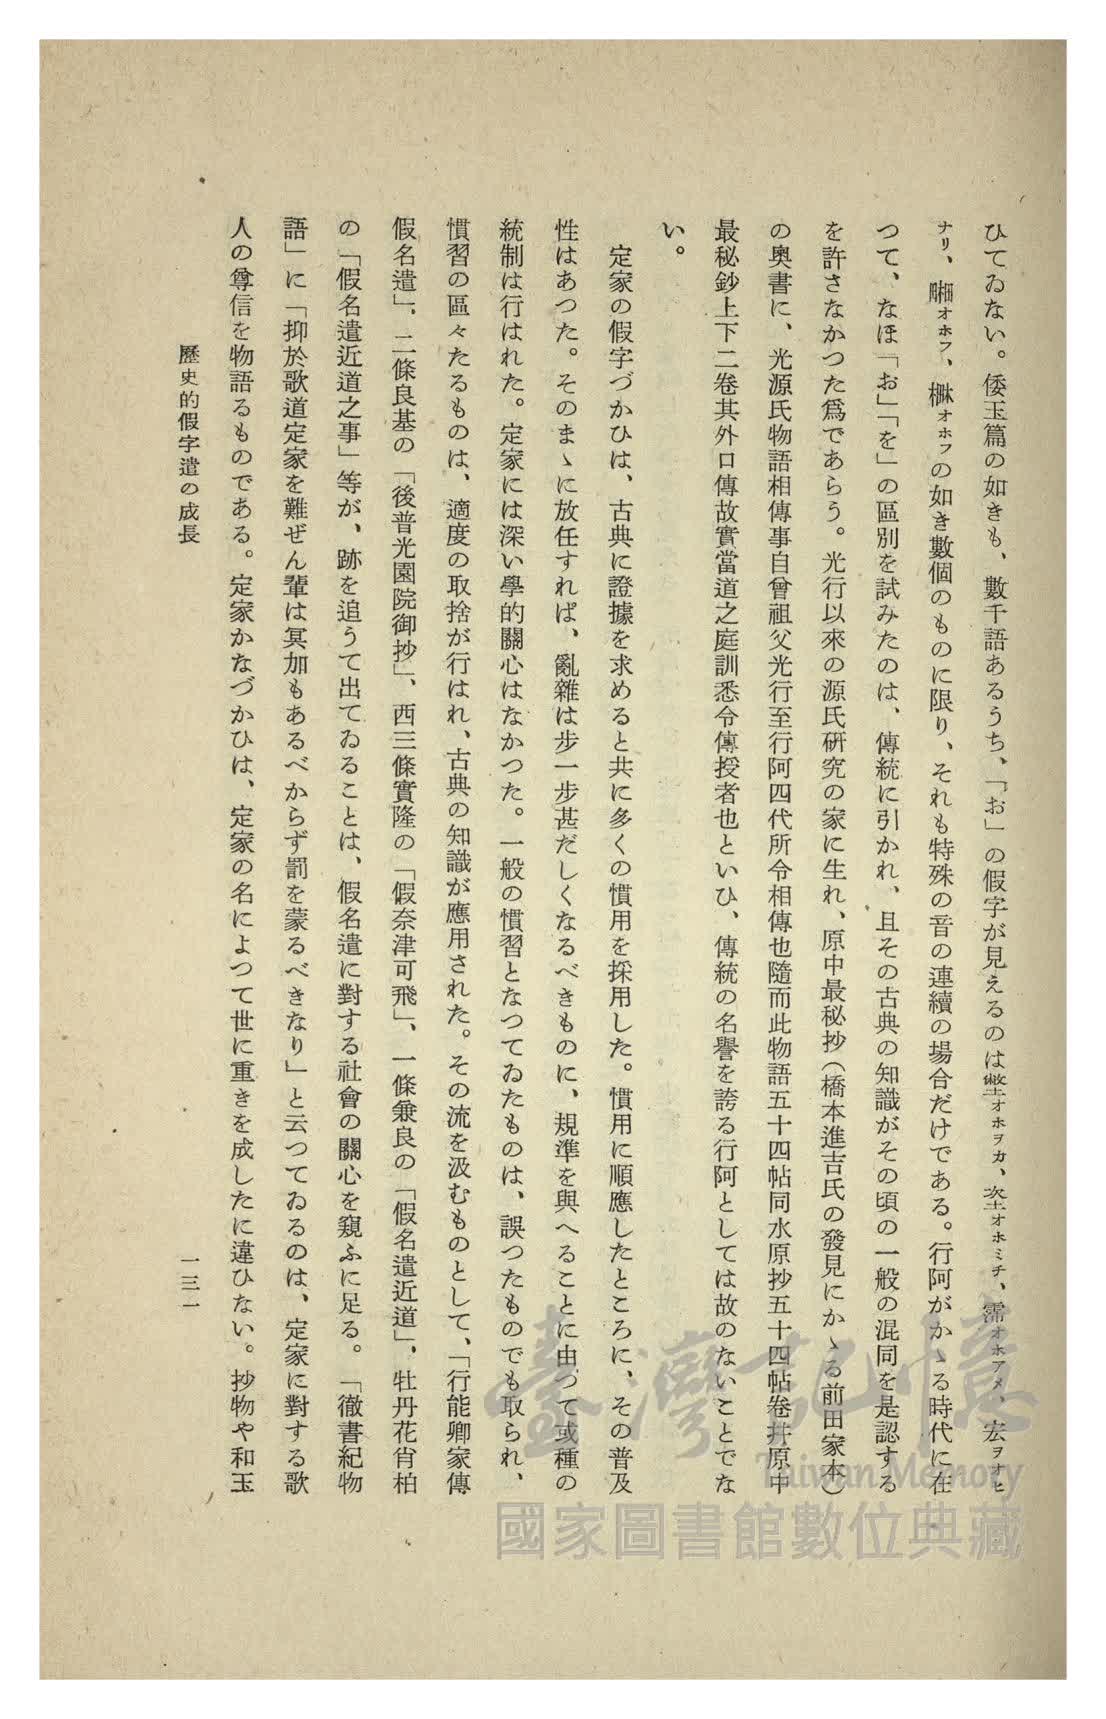 ひてゐない。倭玉篇の如きも、數千語あるうち、「お」の假字が見えるのは オホヲカ、 オホミチ、 オホアメ、宏ヲオヒ
ナリ、 オホフ、 オホフの如き數個のものに限り、それも特殊の音の連續の場合だけである。行阿がかゝる時代に在
つて、なほ「お」「を」の區別を試みたのは、傳統に引かれ、且その古典の知識がその頃の一般の混同を是認する
を許さなかつた爲であらう。光行以來の源氏研究の家に生れ、原中最秘抄(橋本進吉氏の發見にかゝる前田家本)
の奧書に、光源氏物語相傳事自曾祖父光行至行阿四代所令相傳也隨而此物語五十四帖同水原抄五十四帖卷幷原中
最秘鈔上下二卷其外口傳故實當道之庭訓悉令傳授者也といひ、傳統の名譽を誇る行阿としては故のないことでな
い。
定家の假字づかひは、古典に證據を求めると共に多くの慣用を採用した。慣用に順應したところに、その普及
性はあつた。そのまゝに放任すれば、亂雜は步一步甚だしくなるべきものに、規準を與へることに由つて或種の
統制は行はれた。定家には深い學的關心はなかつた。一般の慣習となつてゐたものは、誤つたものでも取られ、
慣習の區々たるものは、適度の取捨が行はれ、古典の知識が應用された。その流を汲むものとして、「行能卿家傳
假名遣」、二條良基の「後普光園院御抄」、西三條實隆の「假奈津可飛」、一條兼良の「假名遣近道」、牡丹花肖柏
の「假名遣近道之事」等が、跡を追うて出てゐることは、假名遣に對する社會の關心を窺ふに足る。「徹書紀物
語」に「抑於歌道定家を難ぜん輩は冥加もあるべからず罰を蒙るべきなり」と云つてゐるのは、定家に對する歌
人の尊信を物語るものである。定家かなづかひは、定家の名によつて世に重きを成したに違ひない。抄物や和玉
歷史的假字遣の成長
一三一
臺灣記憶
Taiwan Memory
國家圖書館數位典藏